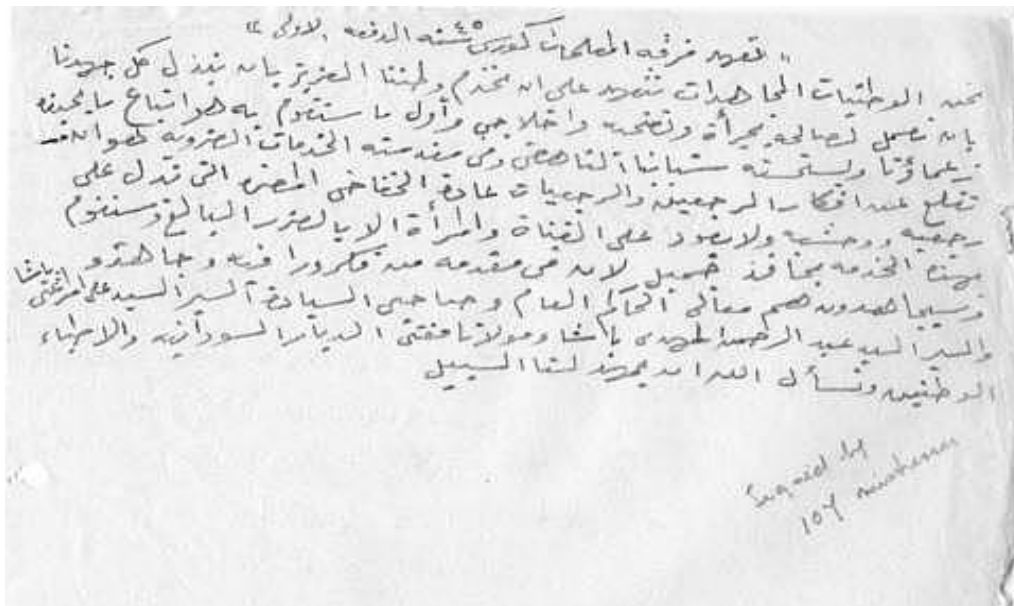 „ تعهد فرقه المعلمات كورس ٤٥ سنه الدفعه الاولى “
نحن الوطنيات المجاهدات نتعهد على ان نخدم وطننا العزيز بان نبذل كل جهدنا
بان نعمل لصالحه بجرأة وتضحيه واخلاص وأول ما سنقوم به هو اتباع ما يحبذه
زعماؤنا شباننا الناهض وفى مقدمته الخدمات الضروريه هو ان
نقلع عن افكار الرجعيين والرجعيات عادة الخفاض المضره التى تدل على
رجعيه ووحشيه ولا تعود على الفتاة والمرأة الا بالضرر البالغ وسنقوم
بهذه الخدمه لان فى مقدمه من فكروا فيه وجاهدو
وسيجاهدون هم معالى الحاكم العام وصاحبى السيادة السير السيد على المرغنى باشا
والسير السيد عبد الرحمن المهدى باشا ومولانا مفتى الديار السودانيه والاطباء
الوطنيين ونسأل الله ان يمهد لنا السبيل
Signed by
104